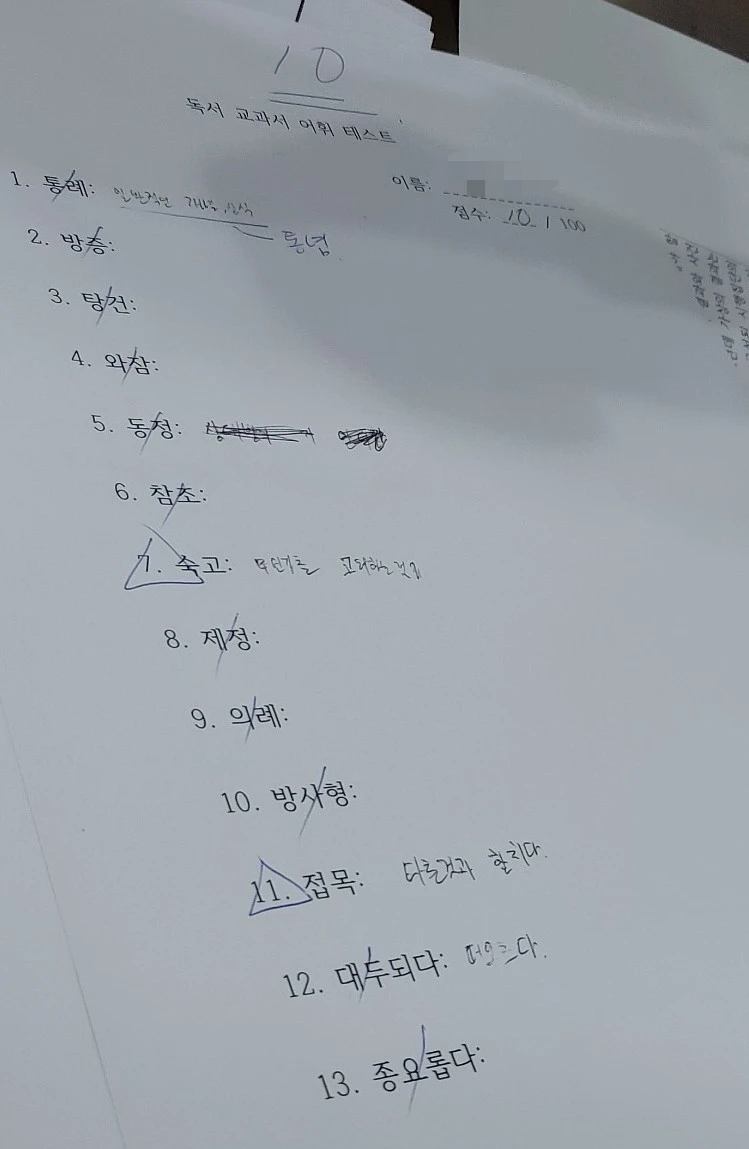 10
독서 교과서 어휘 테스트
이름:
점수: 10 / 100
1. 통례: 일반적인 개념, 상식
통념.
2. 방증:
3. 탕건:
4. 와잠:
5. 동정:
6. 참조:
7. 숙고: 무언가를
8. 제정:
9. 의례:
10. 방사형:
11. 접목: 다른것과 합치다.
12. 대두되다: 떠오르다.
13. 종요롭다: